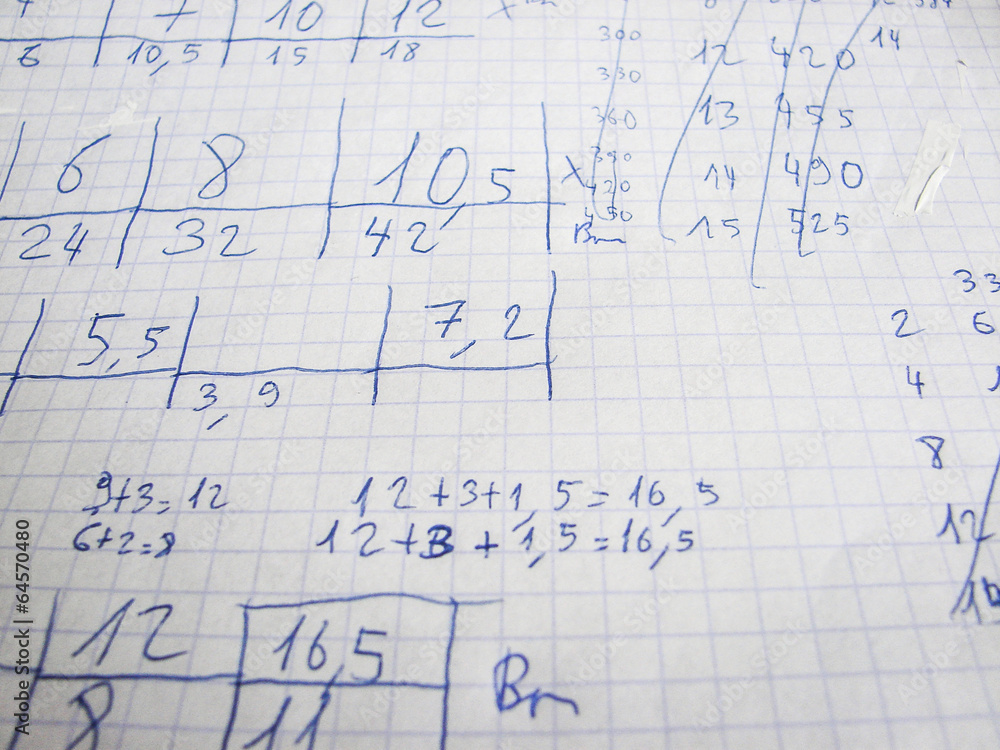 7 10 12
6 10,5 15 18
300
330
360
390
420
450
12 420 14
13 455
14 490
15 525
6 8 10,5 x
24 32 42 Bm
33
2 6
4
8
12
5,5 7,2
3,9
9+3=12 12+3+1,5=16,5
6+2=8 12+3+1,5=16,5
12 16,5
8 11 Bm
Adobe Stock | #64570480